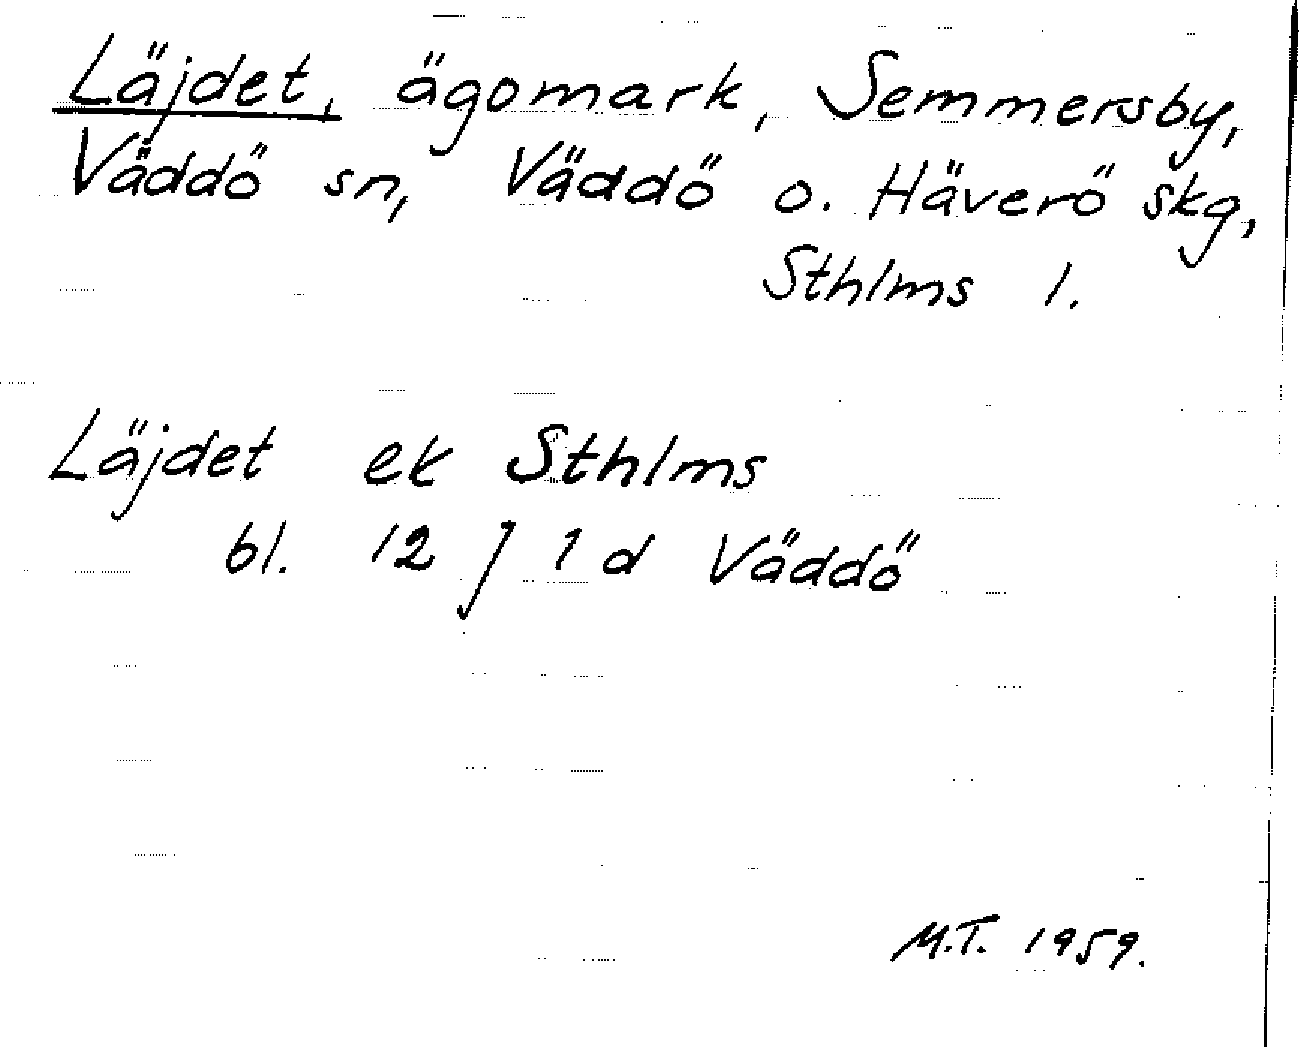 Läjdet, ägomark, Semmersby,
Väddö sn, Väddö o. Häverö skg,
Sthlms l.
Läjdet ek Sthlms
bl. 12 J 1 d Väddö
M.T. 1959.